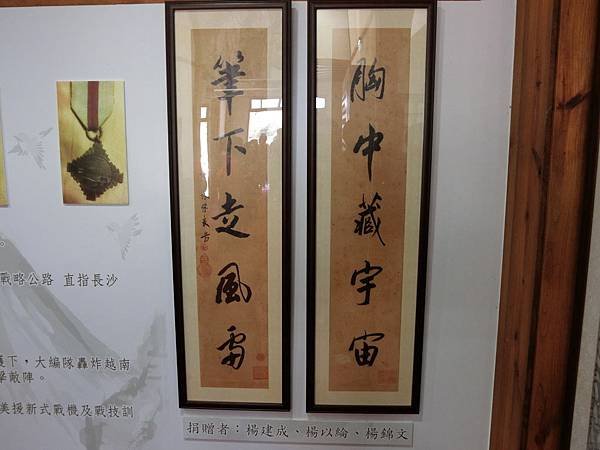 胸中藏宇宙
筆下走風雷
。
戰略公路 直指長沙
下，大編隊轟炸越南
擊敵陣。
美援新式戰機及戰技訓
捐贈者：楊建成、楊以綸、楊錦文